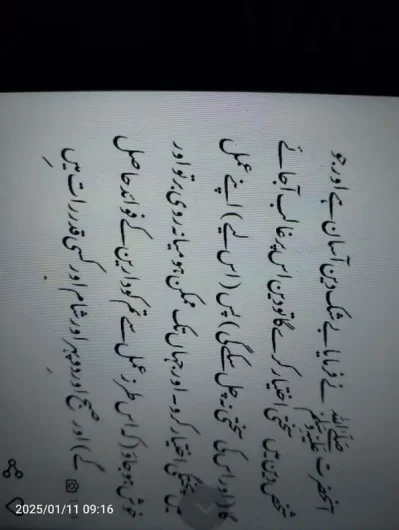 آنحضرت ﷺ نے فرمایا بے شک دین آسان ہے اور جو
شخص دین میں سختی اختیار کرے گا تو دین اس پر غالب آجائے
گا (اور اس کی سختی نہ چل سکے گی) پس (اس لیے) اپنے عمل
میں پختگی اختیار کرو۔ اور جہاں تک ممکن ہو میانہ روی برتو اور
خوش ہو جاؤ (کہ اس طرز عمل سے تم کو دارین کے فوائد حاصل
گے) اور صبح اور دوپہر اور شام اور کسی قدر رات میں
2025/01/11 09:16